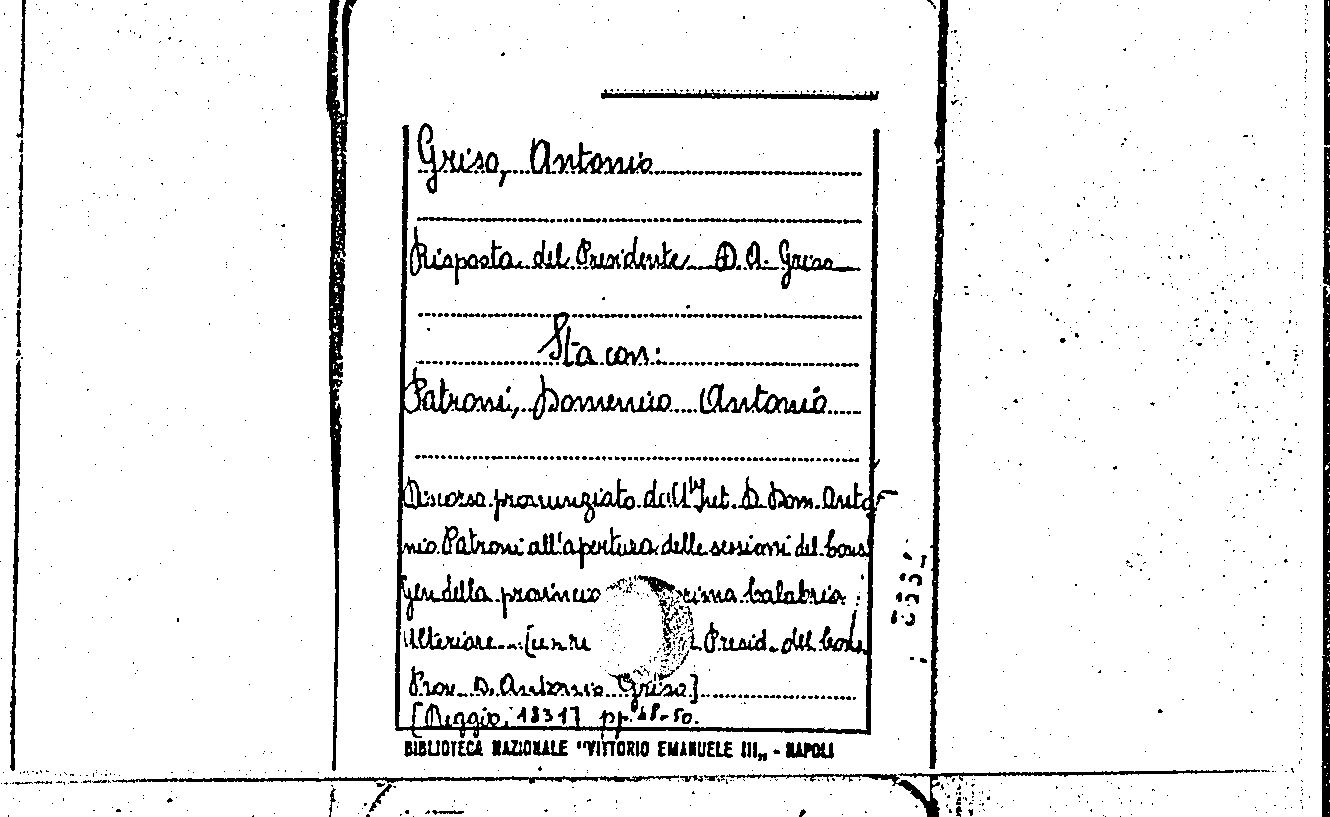 Griso, Antonio
Risposta del Presidente D. A. Griso
Sta con:
Patroni, Domenico Antonio
Discorso pronunziato dall' Int. D. Dom. Anto-
nio Patroni all'apertura delle sessioni del Cons.
Gen della provincia prima Calabria
Ulteriore Presid. del Cons.
Prov. D. Antonio Griso]
[Reggio, 1831] pp. 48-50.
BIBLIOTECA NAZIONALE "VITTORIO EMANUELE III„ - NAPOLI